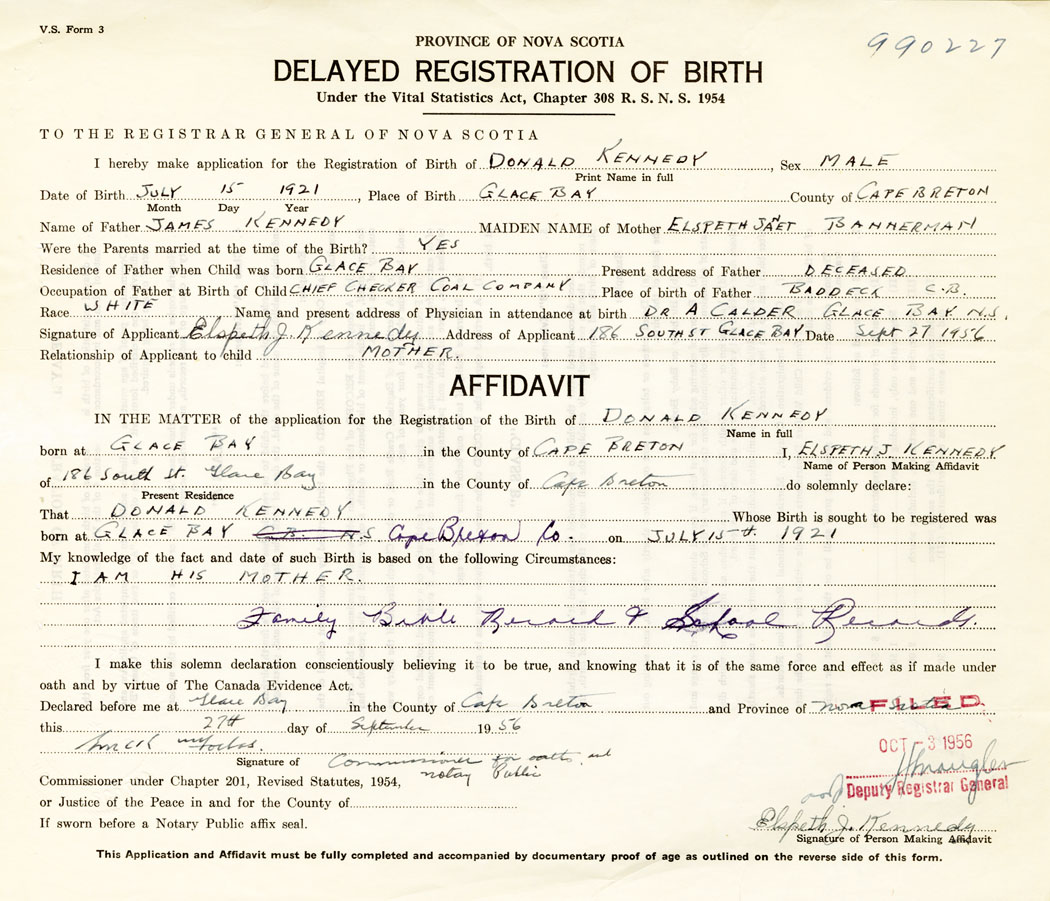 V.S. Form 3
990227
PROVINCE OF NOVA SCOTIA
DELAYED REGISTRATION OF BIRTH
Under the Vital Statistics Act, Chapter 308 R. S. N. S. 1954
TO THE REGISTRAR GENERAL OF NOVA SCOTIA
I hereby make application for the Registration of Birth of DONALD KENNEDY, Sex MALE
Print Name in full
Date of Birth JULY 15 1921, Place of Birth GLACE BAY County of CAPE BRETON
Month Day Year
Name of Father JAMES KENNEDY MAIDEN NAME of Mother ELSPETH JANET BANNERMAN
Were the Parents married at the time of the Birth? YES
Residence of Father when Child was born GLACE BAY Present address of Father DECEASED
Occupation of Father at Birth of Child CHIEF CHECKER COAL COMPANY Place of birth of Father BADDECK C.B.
Race WHITE Name and present address of Physician in attendance at birth DR A CALDER GLACE BAY N.S.
Signature of Applicant Elspeth J. Kennedy Address of Applicant 186 SOUTH ST GLACE BAY Date Sept 27 1956
Relationship of Applicant to child MOTHER.
AFFIDAVIT
IN THE MATTER of the application for the Registration of the Birth of DONALD KENNEDY
Name in full
born at GLACE BAY in the County of CAPE BRETON I, ELSPETH J. KENNEDY
Name of Person Making Affidavit
of 186 South St. Glace Bay in the County of Cape Breton do solemnly declare:
Present Residence
That DONALD KENNEDY Whose Birth is sought to be registered was
born at GLACE BAY C.B. N.S Cape Breton Co. on JULY 15th. 1921
My knowledge of the fact and date of such Birth is based on the following Circumstances:
I AM HIS MOTHER.
Family Bible Record & School Records.
I make this solemn declaration conscientiously believing it to be true, and knowing that it is of the same force and effect as if made under
oath and by virtue of The Canada Evidence Act.
Declared before me at Glace Bay in the County of Cape Breton and Province of Nova Scotia
FILED.
this 27th day of September 1956
OCT -3 1956
Signature of Commissioner for oaths and
notary Public
Commissioner under Chapter 201, Revised Statutes, 1954,
Deputy Registrar General
or Justice of the Peace in and for the County of
If sworn before a Notary Public affix seal.
Elspeth J. Kennedy
Signature of Person Making Affidavit
This Application and Affidavit must be fully completed and accompanied by documentary proof of age as outlined on the reverse side of this form.